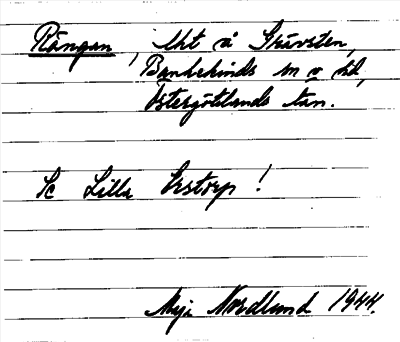 Rängan, tht å Grävsten,
Bankekinds sn o hd,
Östergötlands län.
Se Lilla Erstorp!
Maja Nordlund 1944.